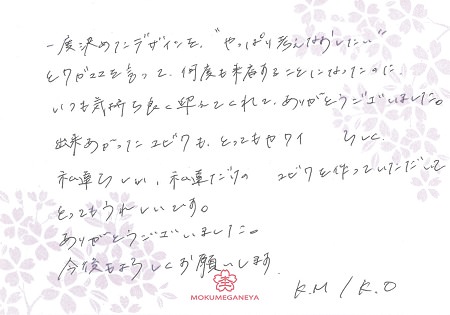 一度決めたデザインを、"やっぱり考えなおしたい"
とワガママを言って、何度も来店することになったのに、
いつも気持ち良く迎えてくれて、ありがとうございました。
出来あがったユビワも、とってもカワイ らしく、
私達らしい、私達だけの ユビワを作っていただいて
とってもうれしいです。
ありがとうございました。
今後もよろしくお願いします。
MOKUMEGANEYA
K.M / K.O